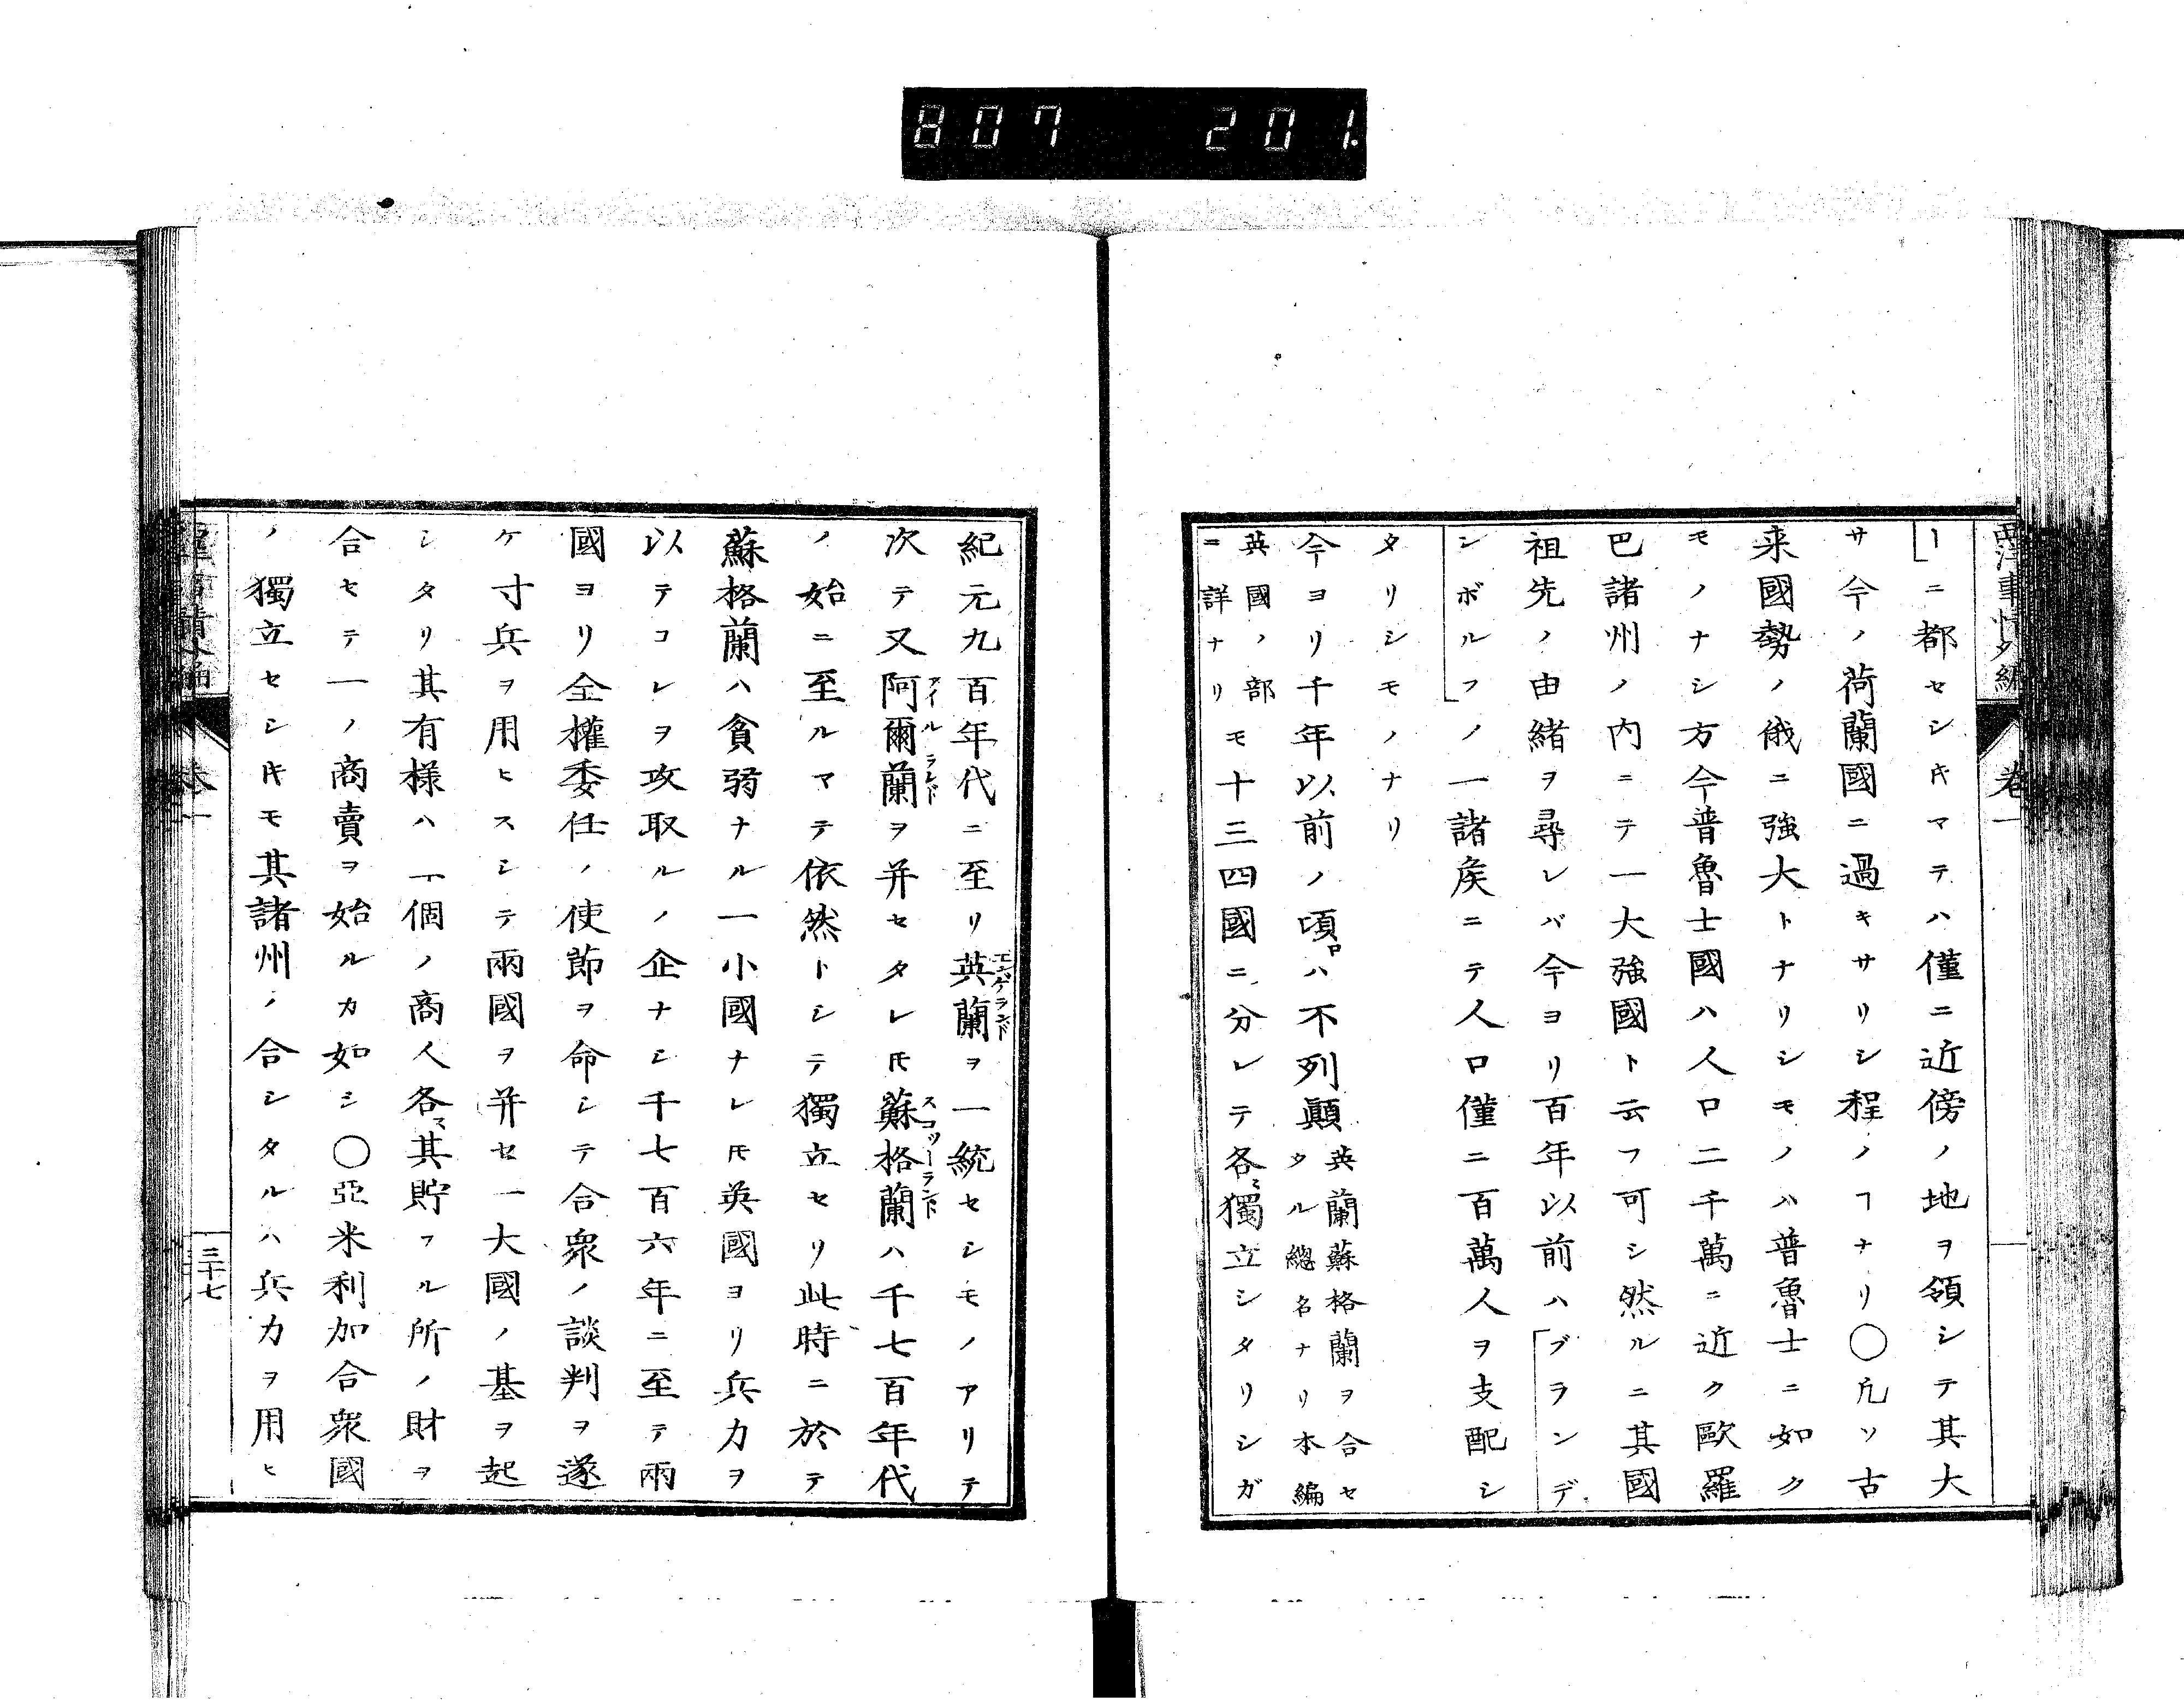 807 201
西洋事情外編 卷一
ー」ニ都セシ𪜈マテハ僅ニ近傍ノ地ヲ領シテ其大
サ今ノ荷蘭國ニ過キサリシ程ノヿナリ〇凢ソ古
来國勢ノ俄ニ強大トナリシモノハ普魯士ニ如ク
モノナシ方今普魯士國ハ人口二千萬ニ近ク歐羅
巴諸州ノ内ニテ一大強國ト云フ可シ然ルニ其國
祖先ノ由緒ヲ尋レバ今ヨリ百年以前ハ「ブランデ
ンボルフ」ノ一諸矦ニテ人口僅ニ百萬人ヲ支配シ
タリシモノナリ
今ヨリ千年以前ノ頃ロハ不列顚英蘭蘇格蘭ヲ合セタル總名ナリ本編
英國ノ部ニ詳ナリモ十三四國ニ分レテ各〻獨立シタリシガ
紀元九百年代ニ至リ英蘭エンゲランドヲ一統セシモノアリテ
次テ又阿爾蘭アイルランドヲ并セタレ𪜈蘇格蘭スコットランドハ千七百年代
ノ始ニ至ルマテ依然トシテ獨立セリ此時ニ於テ
蘇格蘭ハ貧弱ナル一小國ナレ𪜈英國ヨリ兵力ヲ
以テコレヲ攻取ルノ企ナシ千七百六年ニ至テ兩
國ヨリ全權委任ノ使節ヲ命シテ合衆ノ談判ヲ遂
ケ寸兵ヲ用ヒスシテ兩國ヲ并セ一大國ノ基ヲ起
シタリ其有様ハ一個ノ商人各〻其貯フル所ノ財ヲ
合セテ一ノ商賣ヲ始ルカ如シ〇亞米利加合衆國
ノ獨立セシ𪜈モ其諸州ノ合シタルハ兵力ヲ用ヒ
西洋事情外編 卷一 三十七